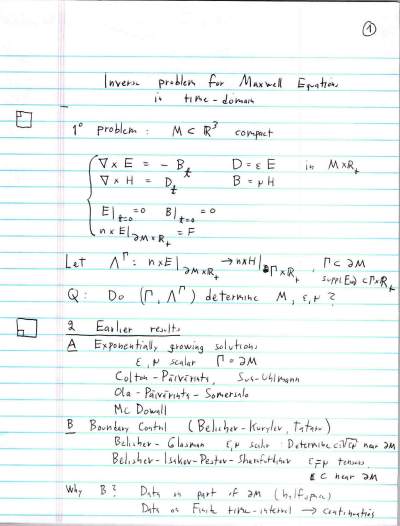 1
Inverse problem for Maxwell Equations
in time-domain
1° problem : M ⊂ ℝ³ compact
∇ × E = - B_t D = ε E in M×ℝ₊
∇ × H = D_t B = μ H
E|_{t=0} = 0 B|_{t=0} = 0
n × E|_{∂M×ℝ₊} = F
Let Λ^Γ : n×E|_{∂M×ℝ₊} → n×H|_{Γ×ℝ₊} , Γ ⊂ ∂M
supp(E) ⊂ Γ×ℝ₊
Q : Do (Γ, Λ^Γ) determine M, ε, μ ?
2 Earlier results
A Exponentially growing solutions
ε, μ scalar Γ = ∂M
Colton - Päivärinta, Sun-Uhlmann
Ola - Päivärinta - Somersalo
Mc Dowall
B Boundary Control (Belishev-Kurylev, Tataru)
Belishev - Glasman ε, μ scalar : Determine c=√εμ near ∂M
Belishev - Isakov - Pestov - Sharafutdinov tensors,
c near ∂M
Why B? Data on part of ∂M (halfspace)
Data on Finite time-interval →